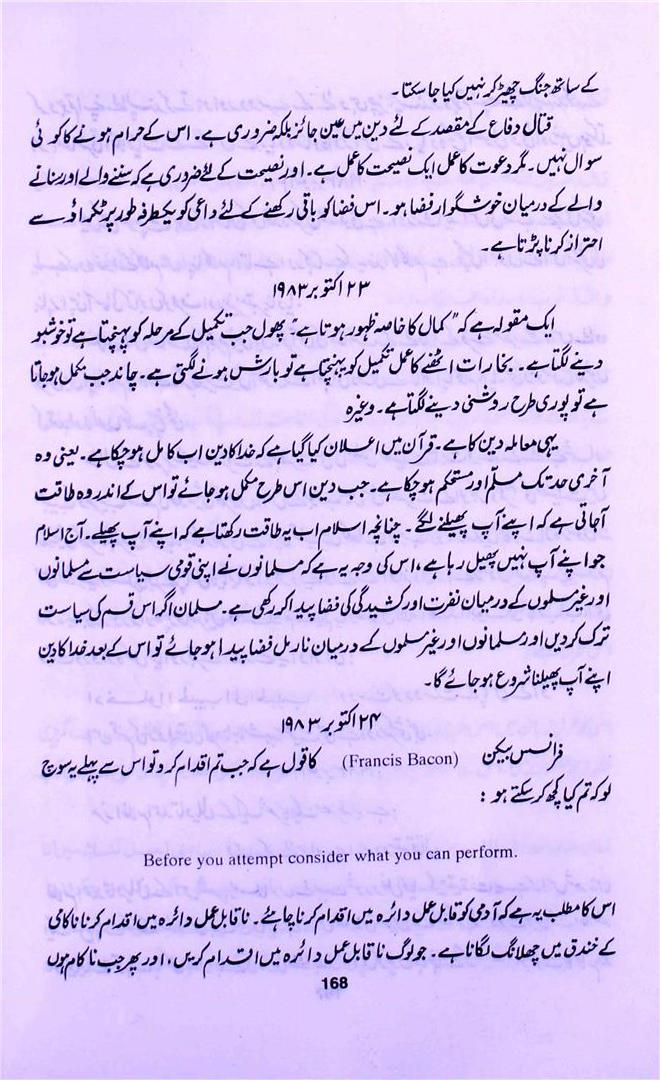 کے ساتھ جنگ چھیڑ کر نہیں کیا جا سکتا۔
قتال دفاع کے مقصد کے لئے دین میں عین جائز بلکہ ضروری ہے۔ اس کے حرام ہونے کا کوئی
سوال نہیں۔ مگر دعوت کا عمل ایک نصیحت کا عمل ہے۔ اور نصیحت کے لئے ضروری ہے کہ سننے والے اور سنانے
والے کے درمیان خوشگوار فضا ہو۔ اس فضا کو باقی رکھنے کے لئے داعی کو یکطرفہ طور پر ٹکراؤ سے
احتراز کرنا پڑتا ہے۔
۲۳ اکتوبر ۱۹۸۳
ایک مقولہ ہے کہ "کمال کا خاصہ ظہور ہوتا ہے" پھول جب تکمیل کے مرحلہ کو پہنچتا ہے تو خوشبو
دینے لگتا ہے۔ بخارات اٹھنے کا عمل تکمیل کو پہنچتا ہے تو بارش ہونے لگتی ہے۔ چاند جب مکمل ہو جاتا
ہے تو پوری طرح روشنی دینے لگتا ہے۔ وغیرہ
یہی معاملہ دین کا ہے۔ قرآن میں اعلان کیا گیا ہے کہ خدا کا دین اب کامل ہو چکا ہے۔ یعنی وہ
آخری حد تک مسلّم اور مستحکم ہو چکا ہے۔ جب دین اس طرح مکمل ہو جائے تو اس کے اندر وہ طاقت
آ جاتی ہے کہ اپنے آپ پھیلنے لگے۔ چنانچہ اسلام اب یہ طاقت رکھتا ہے کہ اپنے آپ پھیلے۔ آج اسلام
جو اپنے آپ نہیں پھیل رہا ہے، اس کی وجہ یہ ہے کہ مسلمانوں نے اپنی قومی سیاست سے مسلمانوں
اور غیر مسلموں کے درمیان نفرت اور کشیدگی کی فضا پیدا کر رکھی ہے۔ مسلمان اگر اس قسم کی سیاست
ترک کر دیں اور مسلمانوں اور غیر مسلموں کے درمیان نارمل فضا پیدا ہو جائے تو اس کے بعد خدا کا دین
اپنے آپ پھیلنا شروع ہو جائے گا۔
۲۴ اکتوبر ۱۹۸۳
فرانسس بیکن (Francis Bacon) کا قول ہے کہ جب تم اقدام کرو تو اس سے پہلے یہ سوچ
لو کہ تم کیا کچھ کر سکتے ہو :
Before you attempt consider what you can perform.
اس کا مطلب یہ ہے کہ آدمی کو قابل عمل دائرہ میں اقدام کرنا چاہئے۔ ناقابل عمل دائرہ میں اقدام کرنا ناکامی
کے خندق میں چھلانگ لگانا ہے۔ جو لوگ ناقابل عمل دائرہ میں اقدام کریں، اور پھر جب ناکام ہوں
168